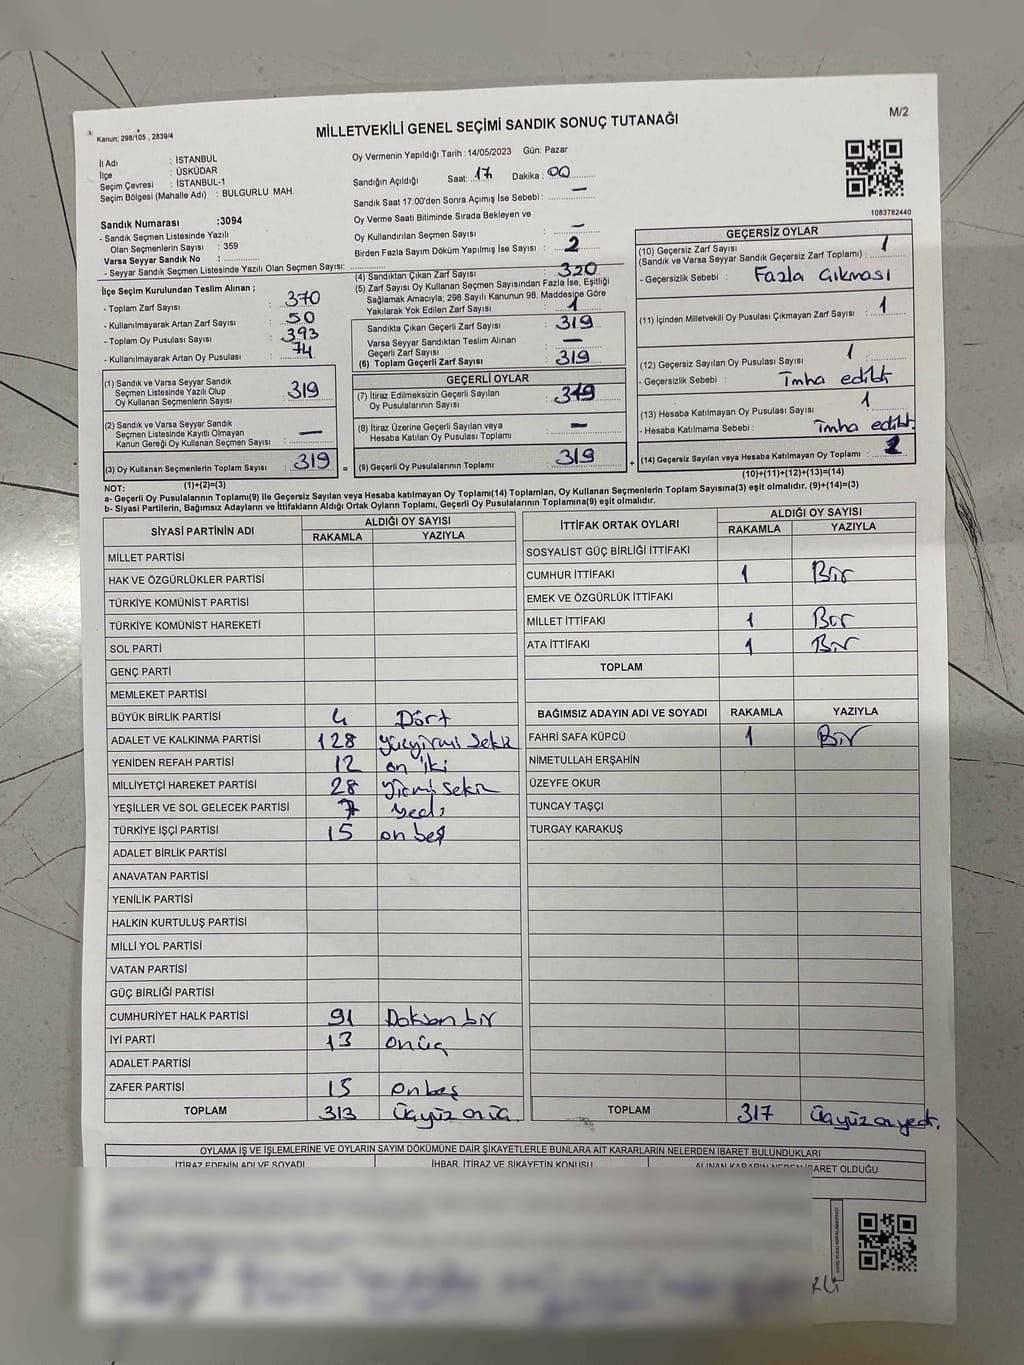 Kanun; 298/105 , 2839/4
MİLLETVEKİLİ GENEL SEÇİMİ SANDIK SONUÇ TUTANAĞI
M/2
İl Adı : İSTANBUL
İlçe : ÜSKÜDAR
Seçim Çevresi : İSTANBUL-1
Seçim Bölgesi (Mahalle Adı) : BULGURLU MAH.
Sandık Numarası :3094
- Sandık Seçmen Listesinde Yazılı
Olan Seçmenlerin Sayısı : 359
Varsa Seyyar Sandık No :
- Seyyar Sandık Seçmen Listesinde Yazılı Olan Seçmen Sayısı:
Oy Vermenin Yapıldığı Tarih : 14/05/2023 Gün: Pazar
Sandığın Açıldığı Saat: 17 Dakika : 00
Sandık Saat 17:00'den Sonra Açımış İse Sebebi : —
Oy Verme Saati Bitiminde Sırada Bekleyen ve
Oy Kullandırılan Seçmen Sayısı : —
Birden Fazla Sayım Döküm Yapılmış İse Sayısı : 2
1083782440
İlçe Seçim Kurulundan Teslim Alınan ;
- Toplam Zarf Sayısı : 370
- Kullanılmayarak Artan Zarf Sayısı : 50
- Toplam Oy Pusulası Sayısı : 393
- Kullanılmayarak Artan Oy Pusulası : 74
(1) Sandık ve Varsa Seyyar Sandık
Seçmen Listesinde Yazılı Olup
Oy Kullanan Seçmenlerin Sayısı : 319
(2) Sandık ve Varsa Seyyar Sandık
Seçmen Listesinde Kayıtlı Olmayan
Kanun Gereği Oy Kullanan Seçmen Sayısı : —
(3) Oy Kullanan Seçmenlerin Toplam Sayısı : 319 =
(1)+(2)=(3)
(4) Sandıktan Çıkan Zarf Sayısı : 320
(5) Zarf Sayısı Oy Kullanan Seçmen Sayısından Fazla İse, Eşitliği
Sağlamak Amacıyla; 298 Sayılı Kanunun 98. Maddesine Göre
Yakılarak Yok Edilen Zarf Sayısı : 1
Sandıkta Çıkan Geçerli Zarf Sayısı : 319
Varsa Seyyar Sandıktan Teslim Alınan
Geçerli Zarf Sayısı : —
(6) Toplam Geçerli Zarf Sayısı : 319
GEÇERLİ OYLAR
(7) İtiraz Edilmeksizin Geçerli Sayılan
Oy Pusulalarının Sayısı : 319
(8) İtiraz Üzerine Geçerli Sayılan veya
Hesaba Katılan Oy Pusulası Toplamı : —
(9) Geçerli Oy Pusulalarının Toplamı : 319 +
GEÇERSİZ OYLAR
(10) Geçersiz Zarf Sayısı : 1
(Sandık ve Varsa Seyyar Sandık Geçersiz Zarf Toplamı)
- Geçersizlik Sebebi : Fazla Çıkması
(11) İçinden Milletvekili Oy Pusulası Çıkmayan Zarf Sayısı : 1
(12) Geçersiz Sayılan Oy Pusulası Sayısı : 1
- Geçersizlik Sebebi : İmha edildi
(13) Hesaba Katılmayan Oy Pusulası Sayısı : 1
- Hesaba Katılmama Sebebi : İmha edildi.
(14) Geçersiz Sayılan veya Hesaba Katılmayan Oy Toplamı :
(10)+(11)+(12)+(13)=(14)
NOT:
a- Geçerli Oy Pusulalarının Toplamı(9) ile Geçersiz Sayılan veya Hesaba katılmayan Oy Toplamı(14) Toplamları, Oy Kullanan Seçmenlerin Toplam Sayısına(3) eşit olmalıdır. (9)+(14)=(3)
b- Siyasi Partilerin, Bağımsız Adayların ve İttifakların Aldığı Ortak Oyların Toplamı, Geçerli Oy Pusulalarının Toplamına(9) eşit olmalıdır.
SİYASİ PARTİNİN ADI ALDIĞI OY SAYISI
RAKAMLA YAZIYLA
MİLLET PARTİSİ
HAK VE ÖZGÜRLÜKLER PARTİSİ
TÜRKİYE KOMÜNİST PARTİSİ
TÜRKİYE KOMÜNİST HAREKETİ
SOL PARTİ
GENÇ PARTİ
MEMLEKET PARTİSİ
BÜYÜK BİRLİK PARTİSİ 4 Dört
ADALET VE KALKINMA PARTİSİ 128 yüzyirmi sekiz
YENİDEN REFAH PARTİSİ 12 on iki
MİLLİYETÇİ HAREKET PARTİSİ 28 yirmi sekiz
YEŞİLLER VE SOL GELECEK PARTİSİ 7 yedi
TÜRKİYE İŞÇİ PARTİSİ 15 on beş
ADALET BİRLİK PARTİSİ
ANAVATAN PARTİSİ
YENİLİK PARTİSİ
HALKIN KURTULUŞ PARTİSİ
MİLLİ YOL PARTİSİ
VATAN PARTİSİ
GÜÇ BİRLİĞİ PARTİSİ
CUMHURİYET HALK PARTİSİ 91 Doksan bir
İYİ PARTİ 13 onüç
ADALET PARTİSİ
ZAFER PARTİSİ 15 onbeş
TOPLAM 313 Üçyüz onüç
İTTİFAK ORTAK OYLARI ALDIĞI OY SAYISI
RAKAMLA YAZIYLA
SOSYALİST GÜÇ BİRLİĞİ İTTİFAKI
CUMHUR İTTİFAKI 1 Bir
EMEK VE ÖZGÜRLÜK İTTİFAKI
MİLLET İTTİFAKI 1 Bir
ATA İTTİFAKI 1 Bir
TOPLAM
BAĞIMSIZ ADAYIN ADI VE SOYADI RAKAMLA YAZIYLA
FAHRİ SAFA KÜPCÜ 1 Bir
NİMETULLAH ERŞAHİN
ÜZEYFE OKUR
TUNCAY TAŞÇI
TURGAY KARAKUŞ
TOPLAM 317 Üçyüz onyedi.
OYLAMA İŞ VE İŞLEMLERİNE VE OYLARIN SAYIM DÖKÜMÜNE DAİR ŞİKAYETLERLE BUNLARA AİT KARARLARIN NELERDEN İBARET BULUNDUKLARI
İTİRAZ EDENİN ADI VE SOYADI İHBAR, İTİRAZ VE ŞİKAYETİN KONUSU ALINAN KARARIN NEDEN İBARET OLDUĞU